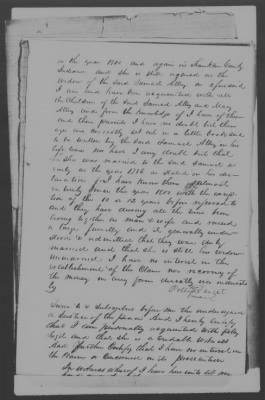 in the year 1801 and again in Franklin County
Indiana and she is still regarded as the
widow of the said Samuel Alley as aforesaid
I am and have been acquainted with all
the Children of the said Samuel Alley and Mary
Alley and from the knowledge I have of them
and their parents I have no doubt but their
ages are correctly set out in a little book said
to be written by the said Samuel Alley in his
life time nor have I any doubt but that
She was married to the said Samuel as
early as the year 1786 as stated in her dec
laration
intimately from the year 1801 with the excep
tion of the 10 or 12 years before referred to
and they have during all the time been
living together as man & wife and raised
a large family and it generally under
stood & admitted that they were duly
married and that she is still his widow
unmarried I have no interest in the
establishment of the Claim nor recovery of
the money in any form directly or indirectly
Sworn to & Subscribed before me the undersigned
a Justice of the peace And I hereby Certify
that I am personally acquainted with Polly
and that she is a Creditable Witness
And further Certify that I have no interest in
the Claim or Concerned in its prosecution
In witness whereof I have hereunto set my